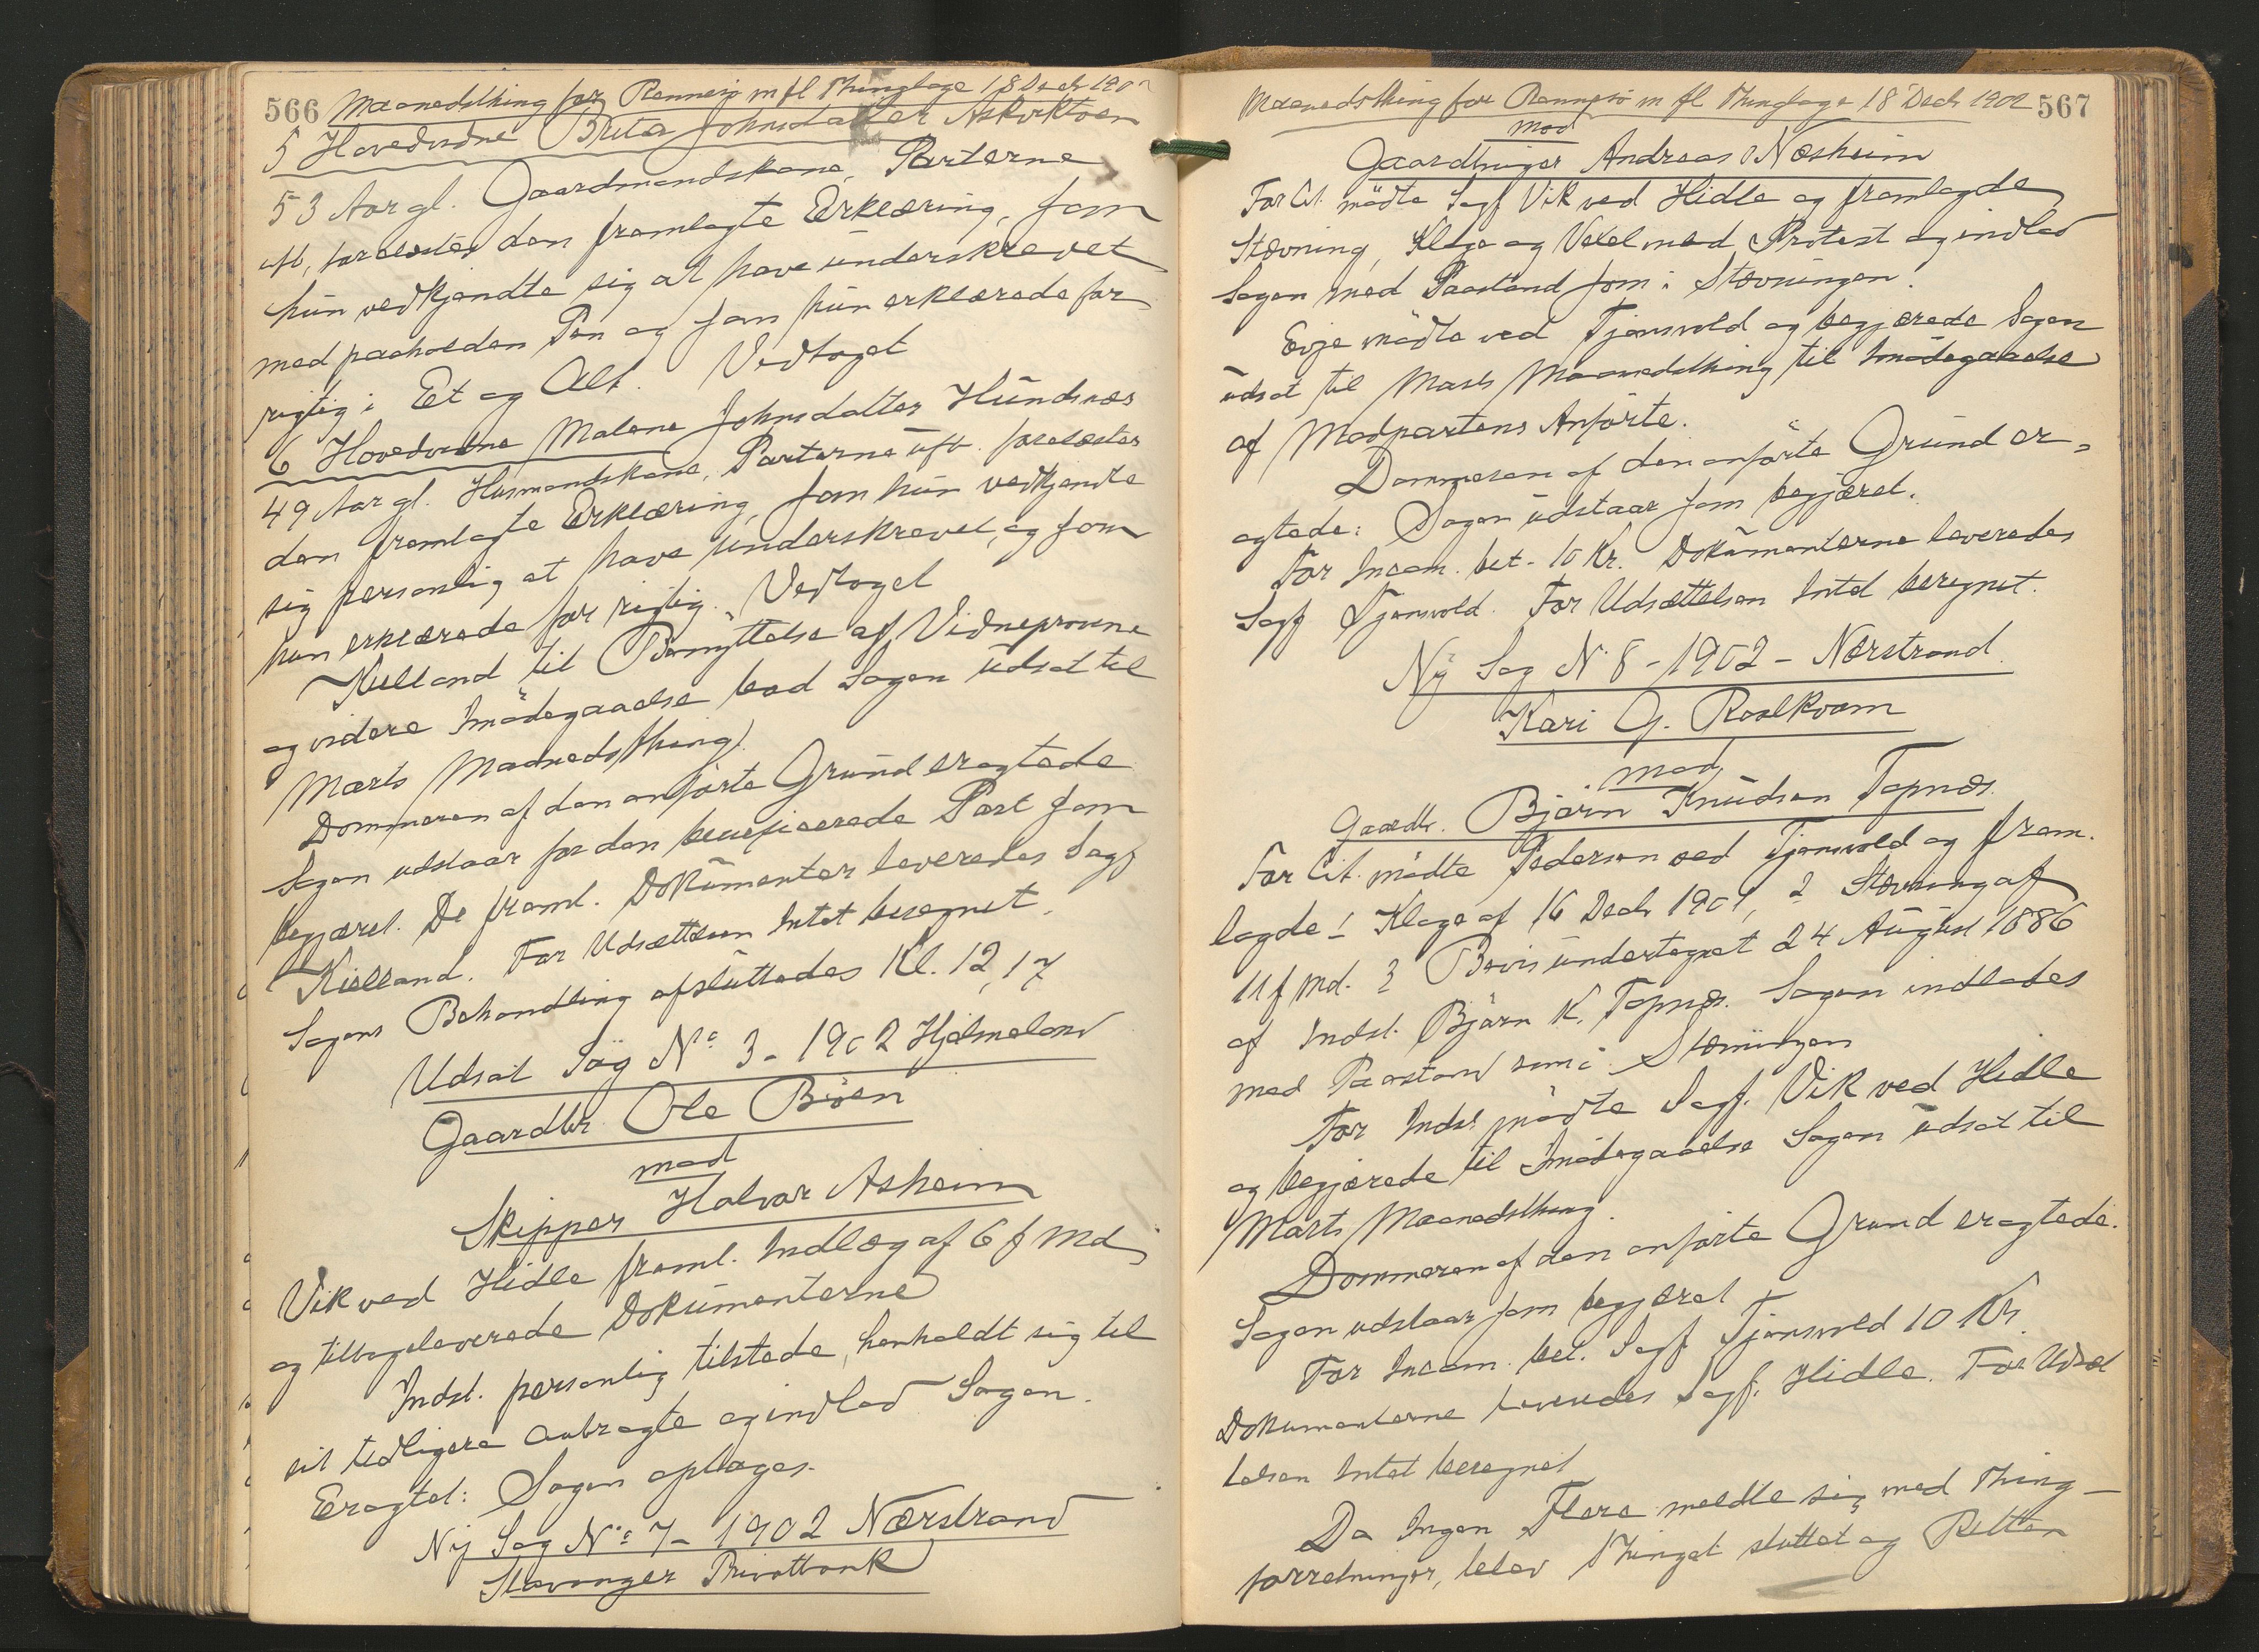 566 Maanedsthing for Rennesø m fl Thinglage 18 Decb 1902
5 Hovedvidne Brita Johnsdatter Askviktoen
53 Aar gl. Gaardmandskone, Parterne
uft, forelæstes den fremlagte Erklæring, som
hun vedkjendte sig at have underskrevet
med paaholden Pen og som hun erklærede for
rigtig i Et og Alt. Vedtaget
6 Hovedvidne Malene Johnsdatter Hundsnes
49 Aar gl. Husmandskone, Parterne uft. forelæstes
den fremlagte Erklæring, som hun vedkjendte
sig personlig at have underskrevet, og som
hun erklærede for rigtig. Vedtaget
Kielland til Benyttelse af Vidneprovene
og videre Imødegaaelse bad Sagen udsat til
Marts Maanedsthing.
Dommeren af den anførte Grund eragtede
Sagen udstaar for den beneficerede Part som
begjæret. De freml. Dokumenter leveredes Sagf
Kielland. For Udsættelsen Intet beregnet.
Sagens Behandling afsluttedes Kl. 12,17
Udsat Sag No 3 - 1902 Hjelmeland
Gaardbr. Ole Bøen
mod
Skipper Halvor Asheim
Vik ved Hidle freml. Indlæg af 6 f Md
og tilbageleverede Dokumenterne
Indst. personlig tilstede, henholdt sig til
sit tidligere Anbragte og indlod Sagen.
Eragtet: Sagen optages.
Ny Sag No 7 - 1902 Nærstrand
Stavanger Privatbank
Maanedsthing for Rennesø m fl Thinglage 18 Decb 1902 567
mod
Gaardbruger Andreas Næsheim
For Cit. mødte Sagf Vik ved Hidle og fremlagde
Stævning, Klage og Vexel med Protest og indlod
Sagen med Paastand som i Stævningen.
Evje mødte ved Tjensvold og begjærede Sagen
udsat til Marts Maanedsthing til Imødegaaelse
af Modpartens Anførte.
Dommeren af den anførte Grund er-
agtede: Sagen udstaar som begjæret.
For Incam. bet. 10 Kr. Dokumenterne leveredes
Sagf Tjensvold. For Udsættelsen Intet beregnet.
Ny Sag N. 8 - 1902 - Nærstrand
Kari G. Roalkvam
mod
Gaardbr. Bjørn Knudsen Tøpnes.
For Cit. mødte Pedersen ved Tjensvold og frem-
lagde 1 Klage af 16 Decb 1901, 2 Stævning af
11 f Md. 3 Bevis undertegnet 24 August 1886
af Indst. Bjørn K. Tøpnes. Sagen indlodes
med Paastand som i Stævningen
For Indst mødte Sagf. Vik ved Hidle
og begjærede til Imødegaaelse Sagen udsat til
Marts Maanedsthing.
Dommeren af den anførte Grund eragtede.
Sagen udstaar som begjæret
For Incam. bet. Sagf Tjensvold 10 Kr.
Dokumenterne leveredes Sagf. Hidle. For Udsæt
telsen Intet beregnet
Da Ingen Flere meldte sig med Thing-
forretninger, blev Thinget sluttet og Retten